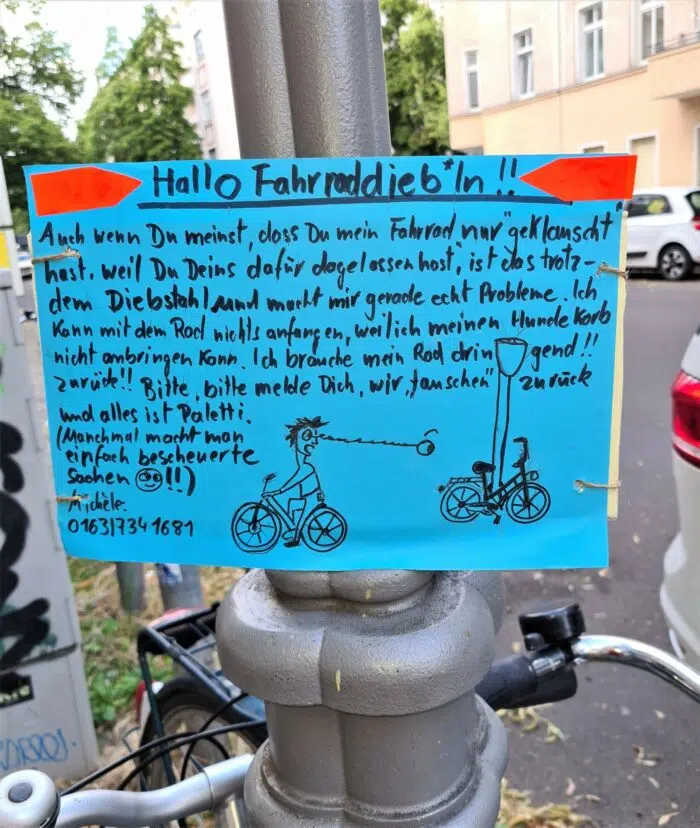 Hallo Fahrraddieb*In !!
Auch wenn Du meinst, dass Du mein Fahrrad nur "geklauscht"
hast, weil Du Deins dafür dagelassen hast", ist das trotz-
dem Diebstahl und macht mir gerade echt Probleme. Ich
kann mit dem Rad nichts anfangen, weil ich meinen Hunde Korb
nicht anbringen kann. Ich brauche mein Rad drin gend !!
zurück!! Bitte, bitte melde Dich, wir "tauschen" zurück
und alles ist Paletti.
(Manchmal macht man
einfach bescheuerte
Sachen !!)
Michèle.
0163/7341681